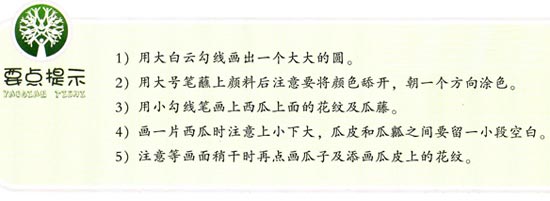 要点提示
YAODIAN TISHI
1）用大白云勾线画出一个大大的圆。
2）用大号笔蘸上颜料后注意要将颜色舔开，朝一个方向涂色。
3）用小勾线笔画上西瓜上面的花纹及瓜藤。
4）画一片西瓜时注意上小下大，瓜皮和瓜瓤之间要留一小段空白。
5）注意等画面稍干时再点画瓜子及添画瓜皮上的花纹。